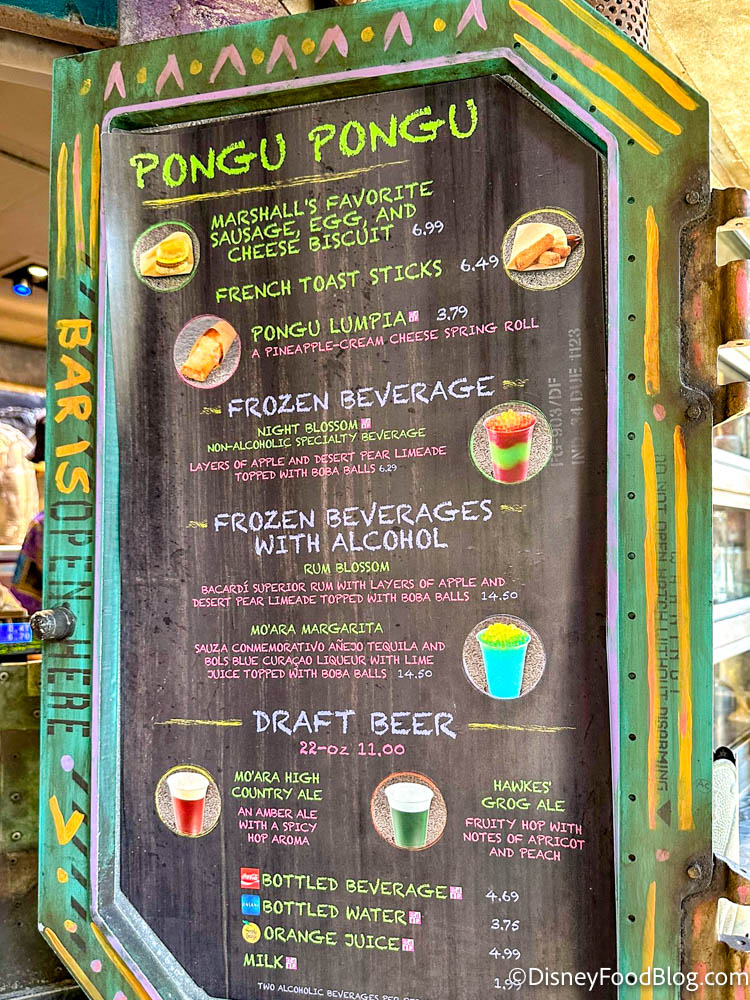 PONGU PONGU
MARSHALL'S FAVORITE
SAUSAGE, EGG, AND
CHEESE BISCUIT 6.99
FRENCH TOAST STICKS 6.49
PONGU LUMPIA 3.79
A PINEAPPLE-CREAM CHEESE SPRING ROLL
FROZEN BEVERAGE
NIGHT BLOSSOM
NON-ALCOHOLIC SPECIALTY BEVERAGE
LAYERS OF APPLE AND DESERT PEAR LIMEADE
TOPPED WITH BOBA BALLS 6.29
FROZEN BEVERAGES
WITH ALCOHOL
RUM BLOSSOM
BACARDÍ SUPERIOR RUM WITH LAYERS OF APPLE AND
DESERT PEAR LIMEADE TOPPED WITH BOBA BALLS 14.50
MO'ARA MARGARITA
SAUZA CONMEMORATIVO AÑEJO TEQUILA AND
BOLS BLUE CURAÇAO LIQUEUR WITH LIME
JUICE TOPPED WITH BOBA BALLS 14.50
DRAFT BEER
22-OZ 11.00
MO'ARA HIGH
COUNTRY ALE
AN AMBER ALE
WITH A SPICY
HOP AROMA
HAWKES'
GROG ALE
FRUITY HOP WITH
NOTES OF APRICOT
AND PEACH
BOTTLED BEVERAGE 4.69
BOTTLED WATER 3.75
ORANGE JUICE 4.99
MILK
TWO ALCOHOLIC BEVERAGES PER
BAR IS OPEN HERE
DO NOT OPEN HATCH WITHOUT DISARMING
©DisneyFoodBlog.com